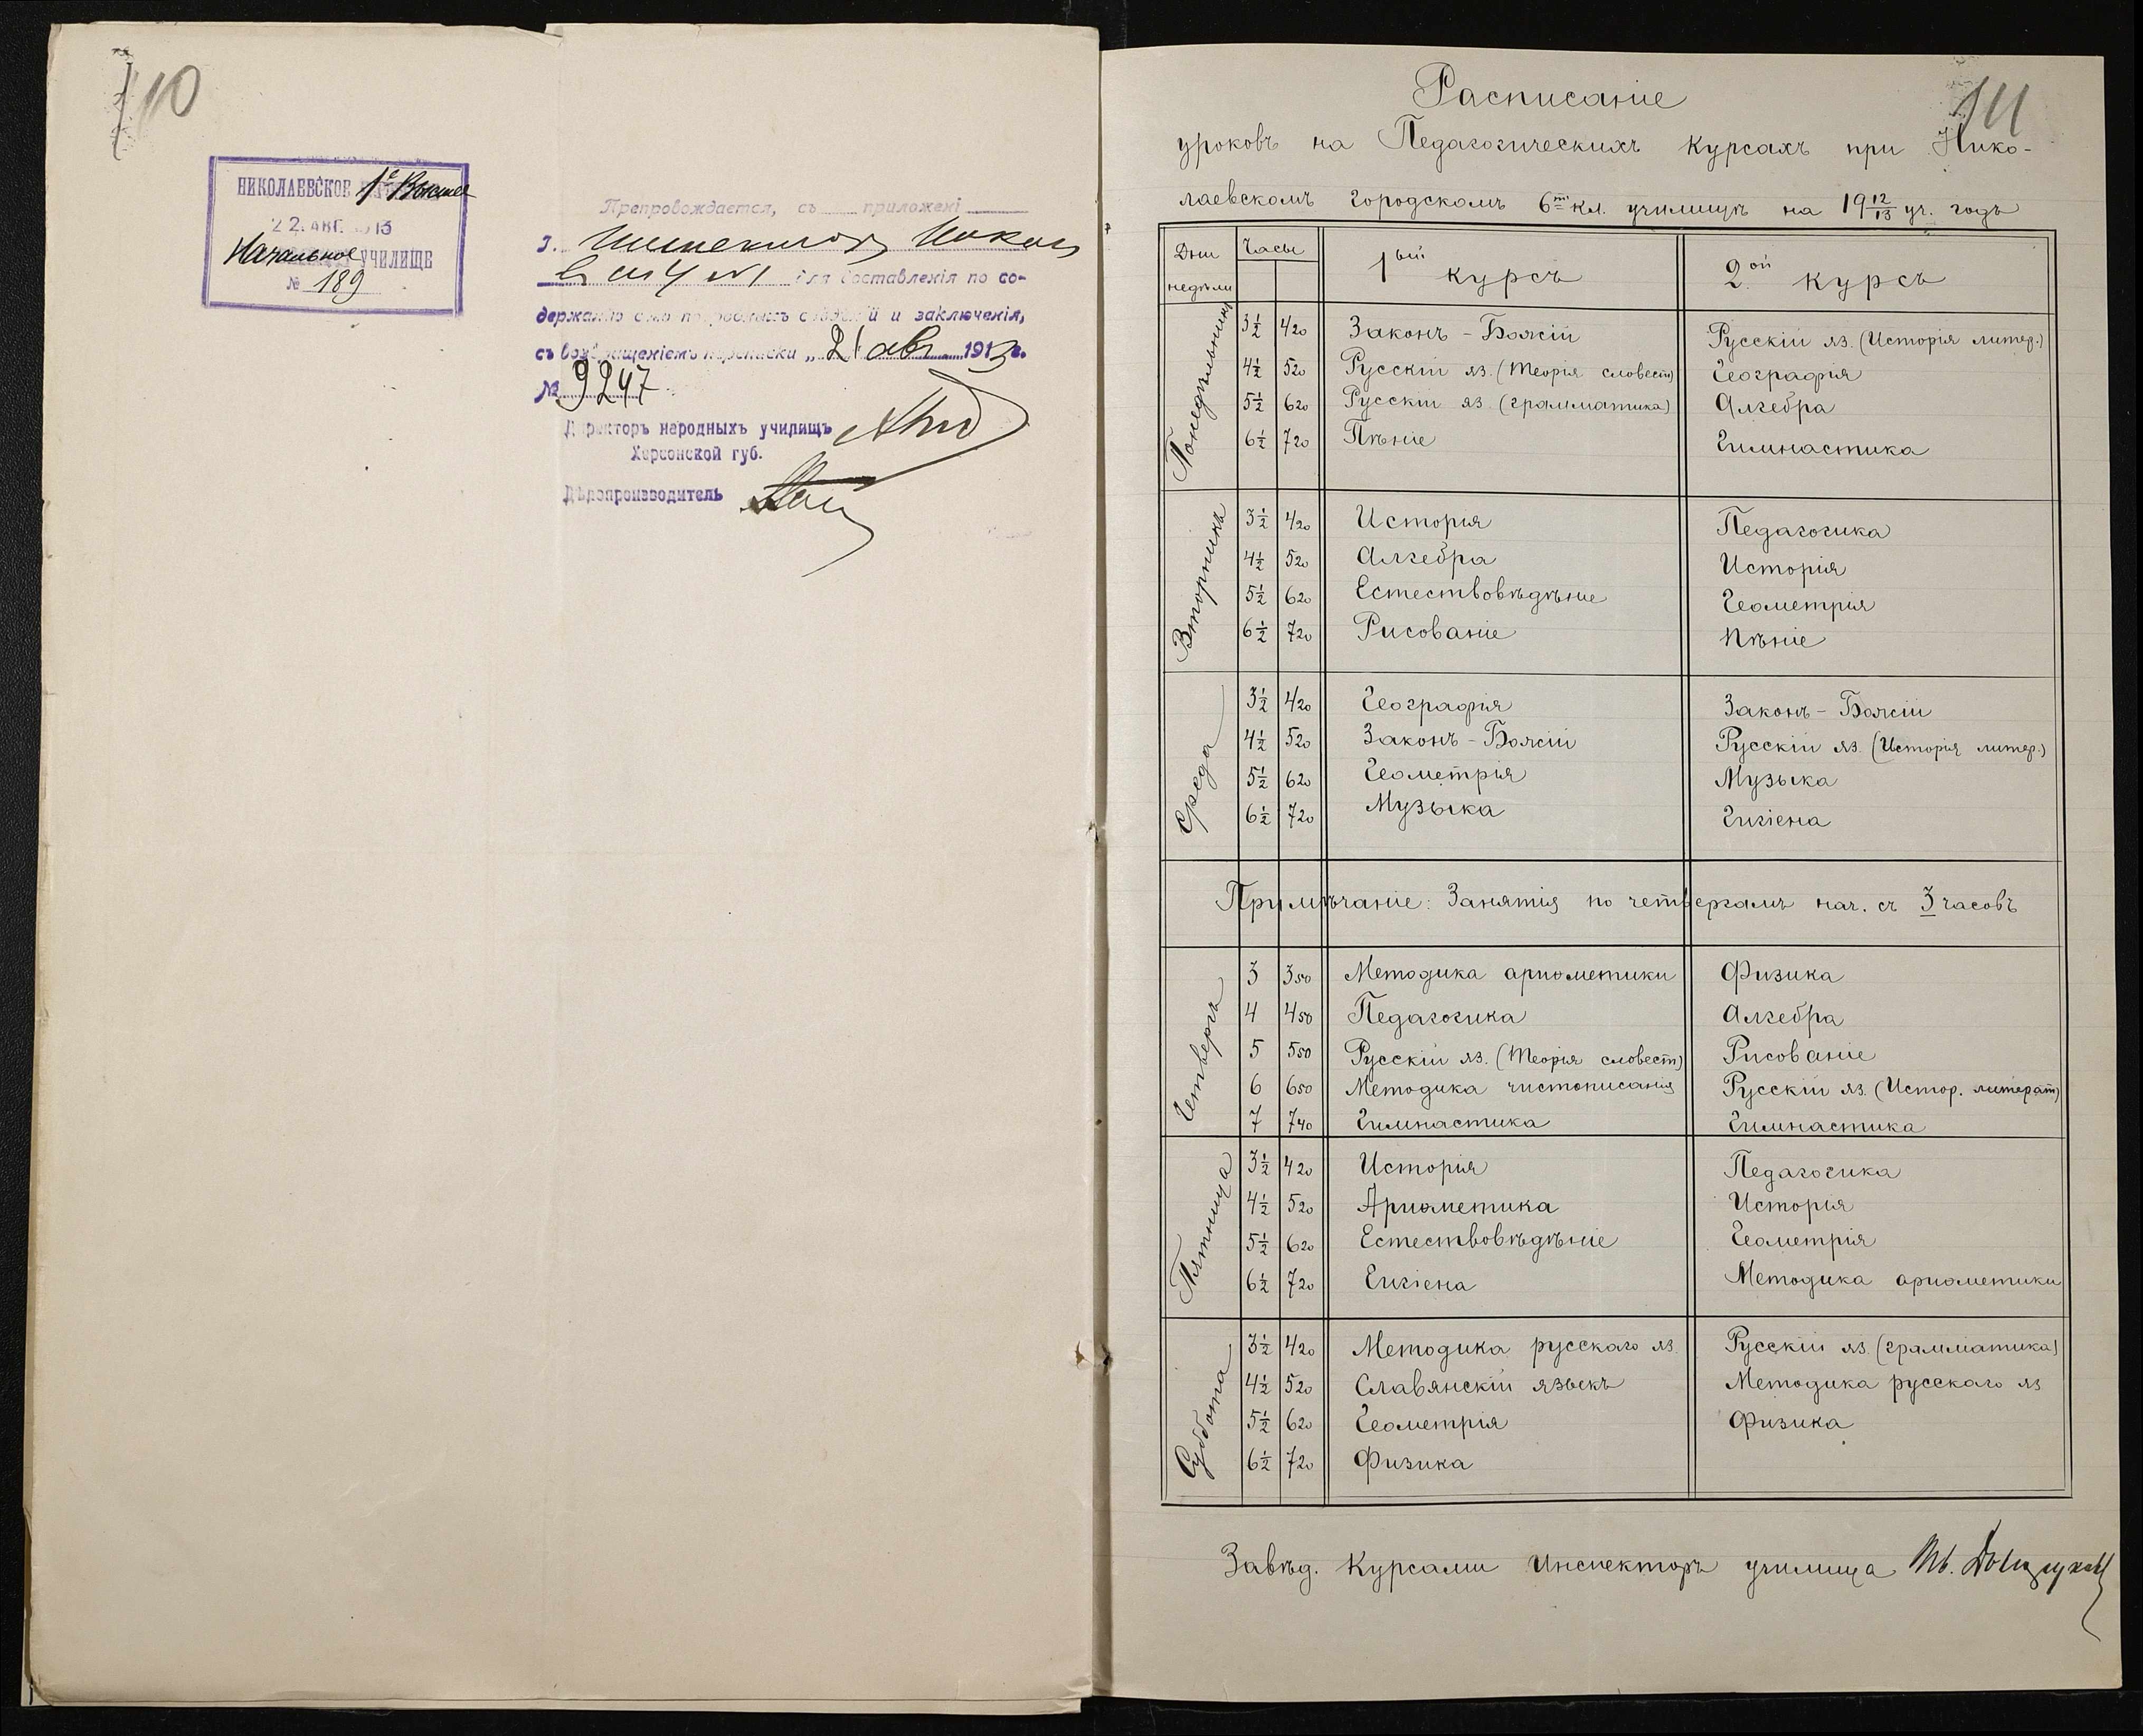 10
НИКОЛАЕВСКОЕ 1е Высшее
22. АВГ. 1913
Начальное УЧИЛИЩЕ
№ 189
Препровождается, съ приложені
г. Инспектору Никол
для доставленія по со-
держанію и заключенія,
съ возвращеніемъ переписки „21 авг 1913 г.
№ 9247
Директоръ народныхъ училищъ
Херсонской губ.
Дѣлопроизводитель
Расписаніе
уроковъ на Педагогическихъ Курсахъ при Нико-
лаевскомъ городскомъ 6ти кл. училищѣ на 19 12/13 уч. годъ
Дни недѣли Часы 1ый курсъ 2ой курсъ
Понедѣльникъ
3½ 4 20 Законъ-Божій Русскій яз. (Исторія литер.)
4½ 5 20 Русскій яз. (Теорія словест) Географія
5½ 6 20 Русскій яз. (грамматика) Алгебра
6½ 7 20 Пѣніе Гимнастика
Вторникъ
3½ 4 20 Исторія Педагогика
4½ 5 20 Алгебра Исторія
5½ 6 20 Естествовѣдѣніе Геометрія
6½ 7 20 Рисованіе Пѣніе
Среда
3½ 4 20 Географія Законъ-Божій
4½ 5 20 Законъ-Божій Русскій яз. (Исторія литер.)
5½ 6 20 Геометрія Музыка
6½ 7 20 Музыка Гигіена
Примѣчаніе: Занятія по четвергамъ нач. съ 3 часовъ
Четвергъ
3 3 50 Методика ариѳметики Физика
4 4 50 Педагогика Алгебра
5 5 50 Русскій яз. (Теорія словест) Рисованіе
6 6 50 Методика чистописанія Русскій яз. (Истор. литерат)
7 7 40 Гимнастика Гимнастика
Пятница
3½ 4 20 Исторія Педагогика
4½ 5 20 Ариѳметика Исторія
5½ 6 20 Естествовѣдѣніе Геометрія
6½ 7 20 Гигіена Методика ариѳметики
Суббота
3½ 4 20 Методика русскаго яз. Русскій яз. (грамматика)
4½ 5 20 Славянскій языкъ Методика русскаго яз
5½ 6 20 Геометрія Физика
6½ 7 20 Физика
Завѣд. Курсами Инспекторъ училища